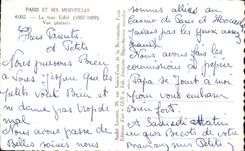 PARIS ET SES MERVEILLES
4.002 — La tour Eiffel (1887-1889)
Vue générale
Chers Parents
et Petits
Nous pensons Bien
à Vous J'espère que les
petits vont Bien et ne
donnent pas trop de
mal
Nous avons passé de
Belles soirées nous
sommes allées au
Casino de Paris et
J'avais pas les yeux assez
grands
Nous avons fait les
commissions à pépère
Papa se joint à moi
pour vous embrasser
Bien fort
et Samedi Matin
un gros Bécots de votre
Maman aux Petits